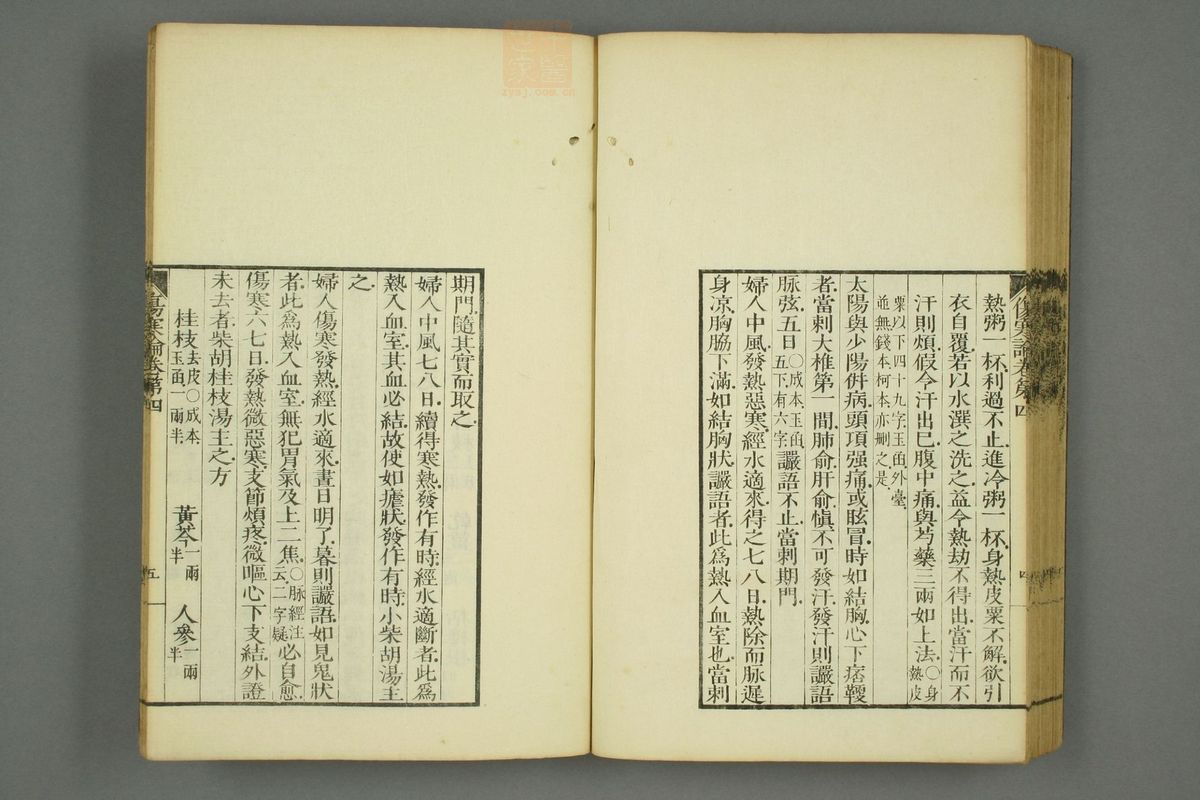 傷寒論卷第四
四
熱粥一杯利過不止進冷粥一杯身熱皮粟不解欲引
衣自覆若以水潠之洗之益令熱劫不得出當汗而不
汗則煩假令汗出已腹中痛與芍藥三兩如上法〇身熱皮
粟以下四十九字玉函外臺
並無錢本柯本亦刪之是
太陽與少陽併病頭項强痛或眩冒時如結胸心下痞鞕
者當刺大椎第一間肺俞肝俞愼不可發汗發汗則讝語
脉弦五日〇成本玉函五下有六字讝語不止當刺期門
婦人中風發熱惡寒經水適來得之七八日熱除而脉遲
身凉胸脇下滿如結胸狀讝語者此爲熱入血室也當刺
期門隨其實而取之
婦人中風七八日續得寒熱發作有時經水適斷者此爲
熱入血室其血必結故使如瘧狀發作有時小柴胡湯主
之
婦人傷寒發熱經水適來晝日明了暮則讝語如見鬼狀
者此爲熱入血室無犯胃氣及上二焦〇脉經注云二字疑必自愈
傷寒六七日發熱微惡寒支節煩疼微嘔心下支結外證
未去者柴胡桂枝湯主之方
桂枝去皮〇成本玉函一兩半 黃芩一兩半 人參一兩半
傷寒論卷第四
五
中醫世家
zysj.com.cn